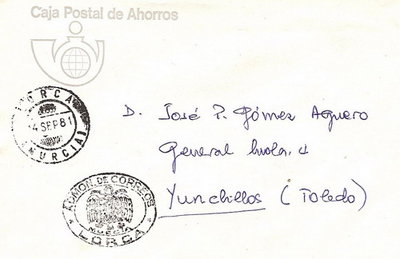 Caja Postal de Ahorros
LORCA
4 SEP 81
(MURCIA)
D. José P. Gómez Agüero
General 4
Yunclillos (Toledo)
ADMON. DE CORREOS
MURCIA
LORCA